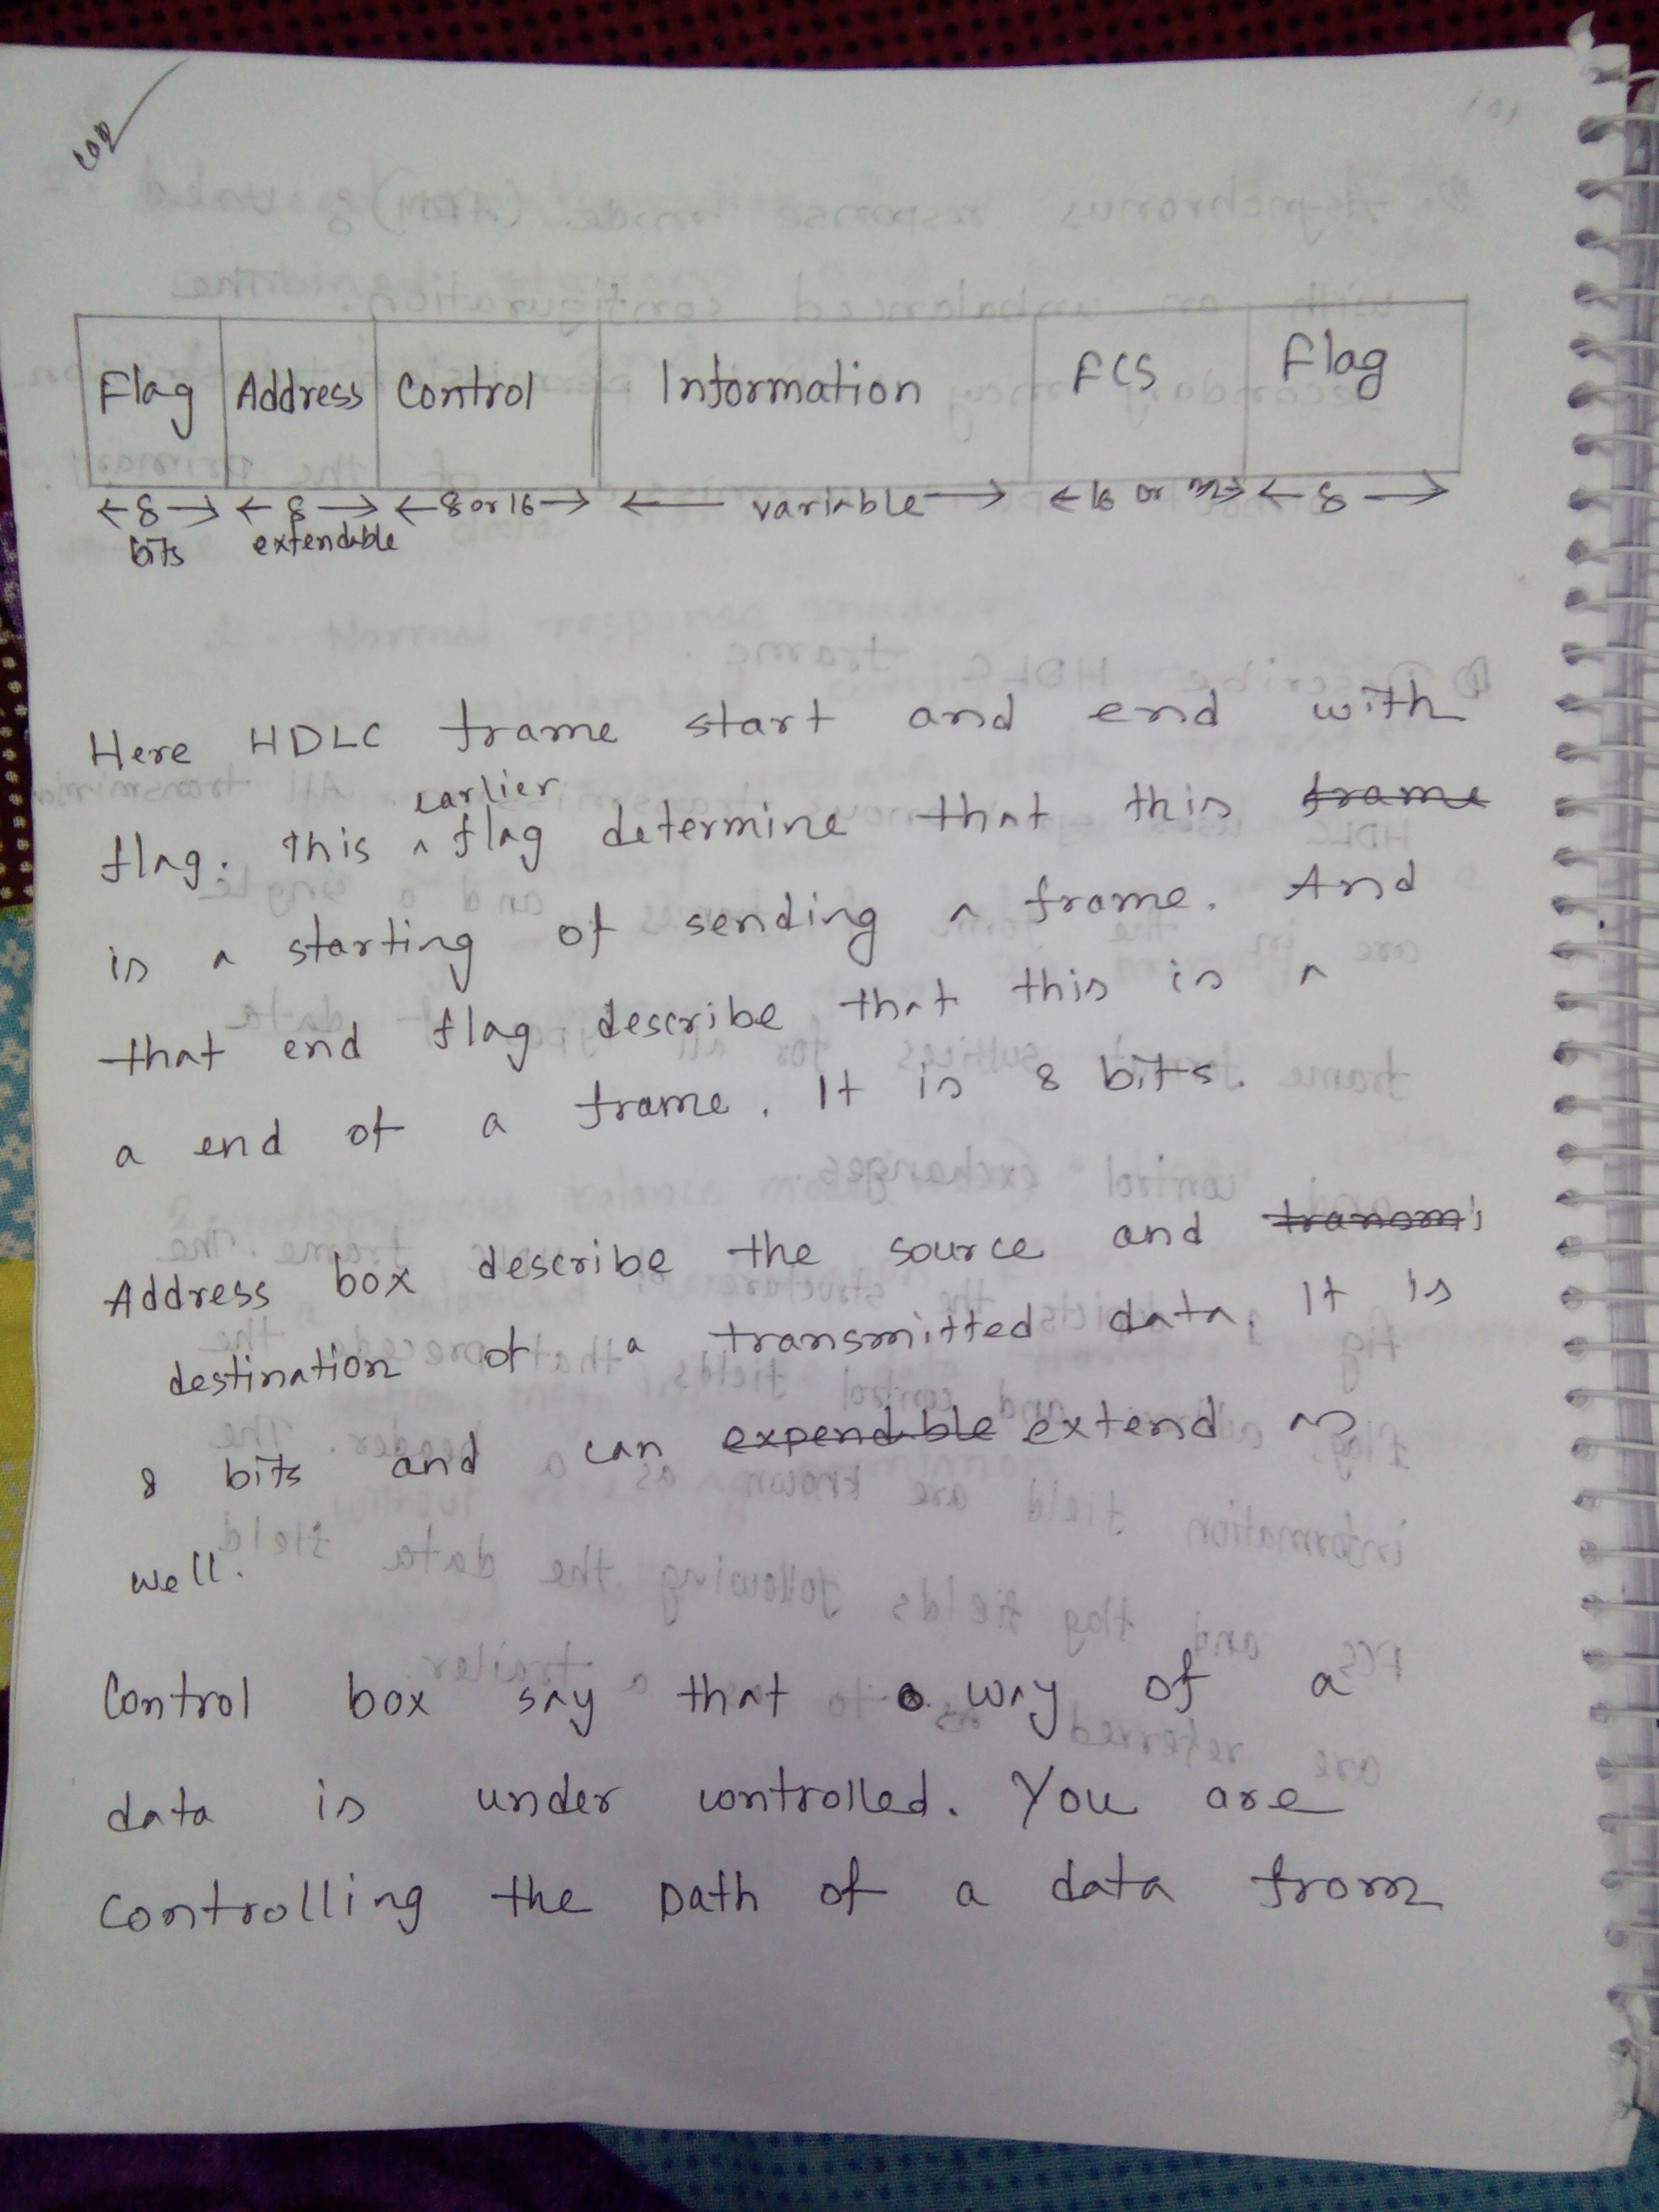 Flag Address Control Information FCS Flag
8 8 8 or 16 variable 16 or 8
bits extendable
Here HDLC frame start and end with
earlier
flag. This ^ flag determine that this frame
is a starting of sending a frame. And
that end flag describe that this is a
a end of a frame. It is 8 bits.
Address box describe the source and transmi
destination of a transmitted data. It is
8 bits and can expendable extend as
well.
Control box say that a way of a
data is under controlled. You are
controlling the path of a data from